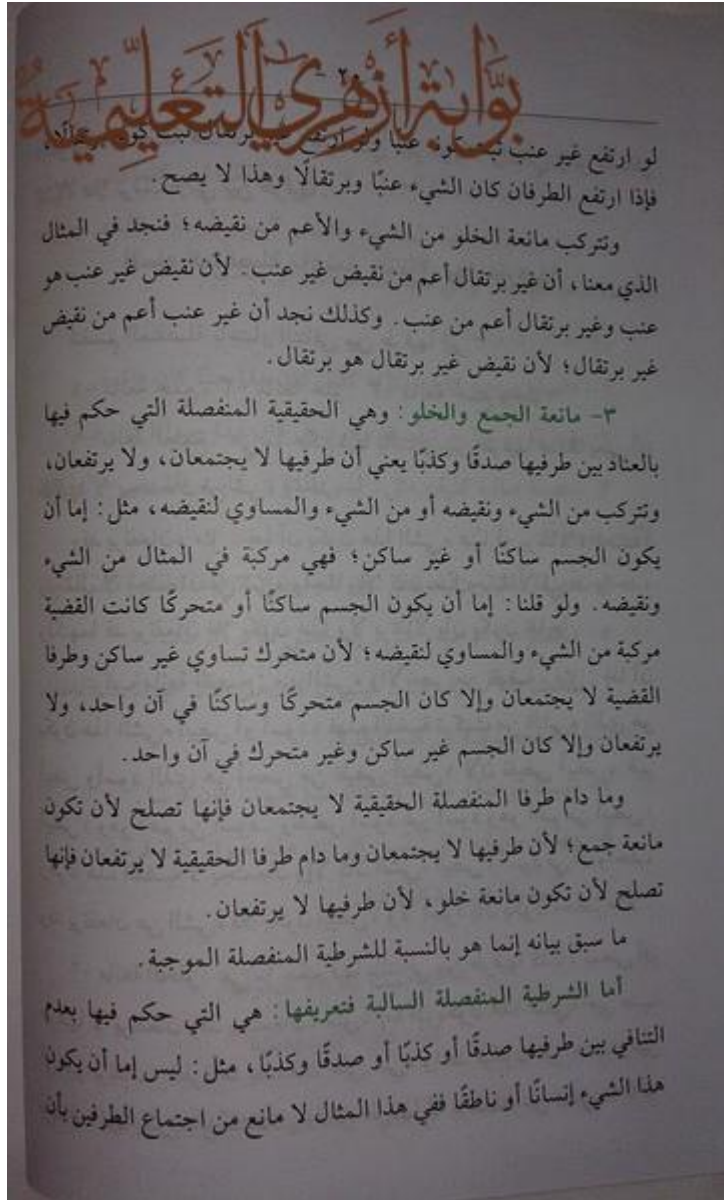 بوابة أزهري التعليمية
٢٠
لو ارتفع غير عنب ثبت كونه عنبًا ولو ارتفع غير برتقال ثبت كونه برتقالًا،
فإذا ارتفع الطرفان كان الشيء عنبًا وبرتقالًا وهذا لا يصح.
وتتركب مانعة الخلو من الشيء والأعم من نقيضه؛ فنجد في المثال
الذي معنا، أن غير برتقال أعم من نقيض غير عنب. لأن نقيض غير عنب هو
عنب وغير برتقال أعم من عنب. وكذلك نجد أن غير عنب أعم من نقيض
غير برتقال؛ لأن نقيض غير برتقال هو برتقال.
٣- مانعة الجمع والخلو: وهي الحقيقية المنفصلة التي حكم فيها
بالعناد بين طرفيها صدقًا وكذبًا يعني أن طرفيها لا يجتمعان، ولا يرتفعان،
وتتركب من الشيء ونقيضه أو من الشيء والمساوي لنقيضه، مثل: إما أن
يكون الجسم ساكنًا أو غير ساكن؛ فهي مركبة في المثال من الشيء
ونقيضه. ولو قلنا: إما أن يكون الجسم ساكنًا أو متحركًا كانت القضية
مركبة من الشيء والمساوي لنقيضه؛ لأن متحرك تساوي غير ساكن وطرفا
القضية لا يجتمعان وإلا كان الجسم متحركًا وساكنًا في آن واحد، ولا
يرتفعان وإلا كان الجسم غير ساكن وغير متحرك في آن واحد.
وما دام طرفا المنفصلة الحقيقية لا يجتمعان فإنها تصلح لأن تكون
مانعة جمع؛ لأن طرفيها لا يجتمعان وما دام طرفا الحقيقية لا يرتفعان فإنها
تصلح لأن تكون مانعة خلو، لأن طرفيها لا يرتفعان.
ما سبق بيانه إنما هو بالنسبة للشرطية المنفصلة الموجبة.
أما الشرطية المنفصلة السالبة فتعريفها: هي التي حكم فيها بعدم
التنافي بين طرفيها صدقًا أو كذبًا أو صدقًا وكذبًا، مثل: ليس إما أن يكون
هذا الشيء إنسانًا أو ناطقًا ففي هذا المثال لا مانع من اجتماع الطرفين بأن